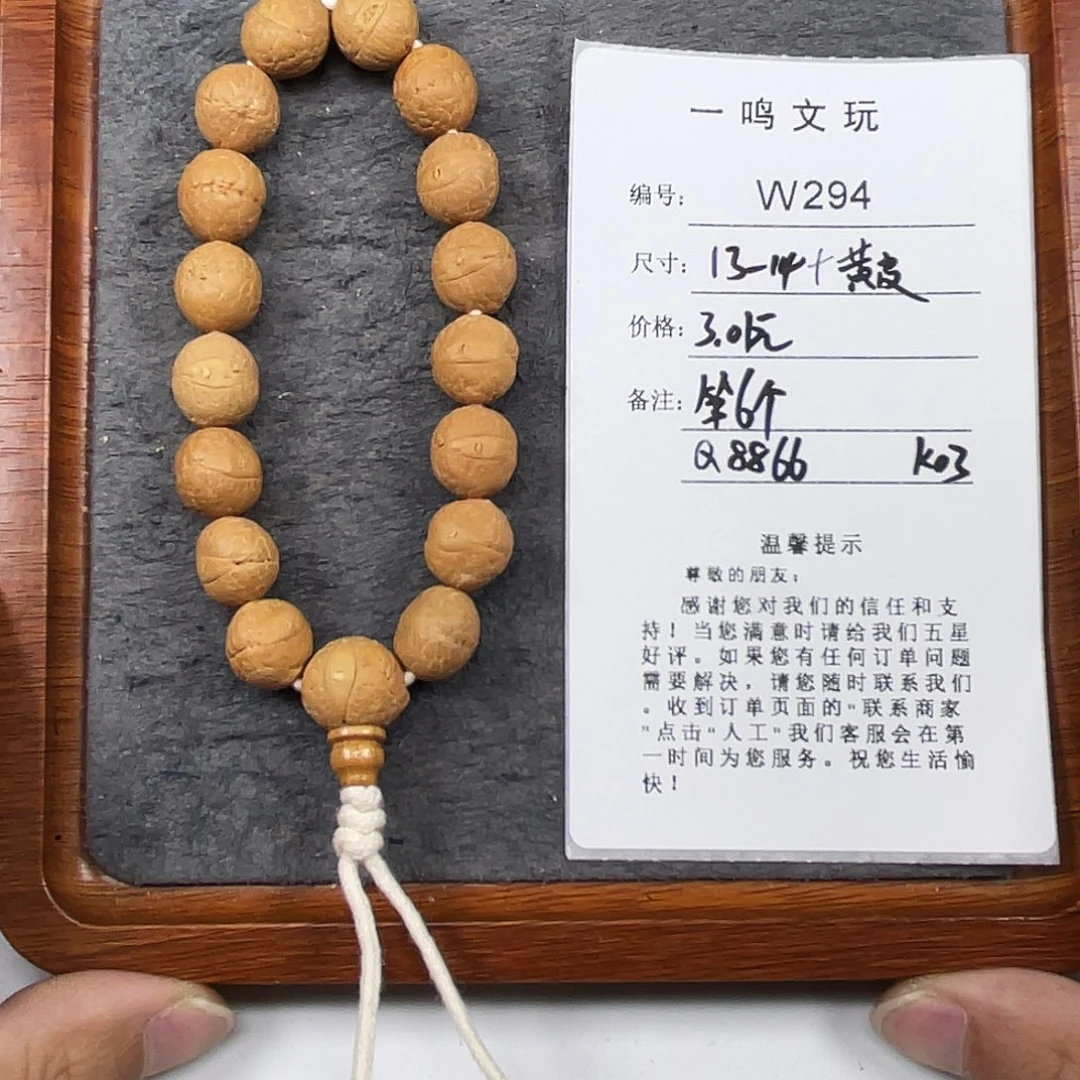 一鸣文玩
编号： W294
尺寸： 13-14+黄皮
价格： 3.0元
备注： 第6个
Q8866 K03
温馨提示
尊敬的朋友：
感谢您对我们的信任和支
持！当您满意时请给我们五星
好评。如果您有任何订单问题
需要解决，请您随时联系我们
。收到订单页面的“联系商家
”点击“人工“我们客服会在第
一时间为您服务。祝您生活愉
快！